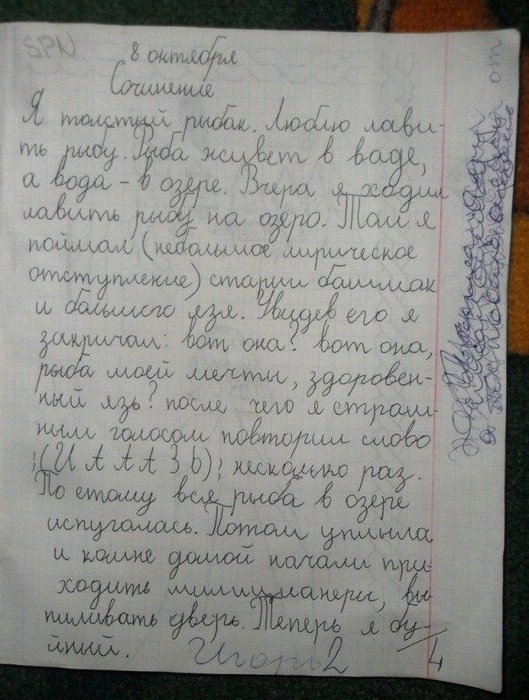 SPN
8 октября
Сочинение
Я толстый рыбак. Люблю лави-
ть рыбу. Рыба живет в ваде,
а вода - в озере. Вчера я ходил
лавить рыбу на озеро. Там я
поймал (небольшое лирическое
отступление) старии башмак
и большого язя. Увидев его я
закричал: вот она? вот она,
рыба моей мечты, здоровен-
ный язь? после чего я страш-
ным голосом повторил слово
;(И А А А З Ь); несколько раз.
По етому вся рыба в озере
испугалась. Потом уплыла
и комне домой начали при
ходить милицианеры, вы-
пиливать дверь. Теперь я бу-
йный. Игорь 2/4
от